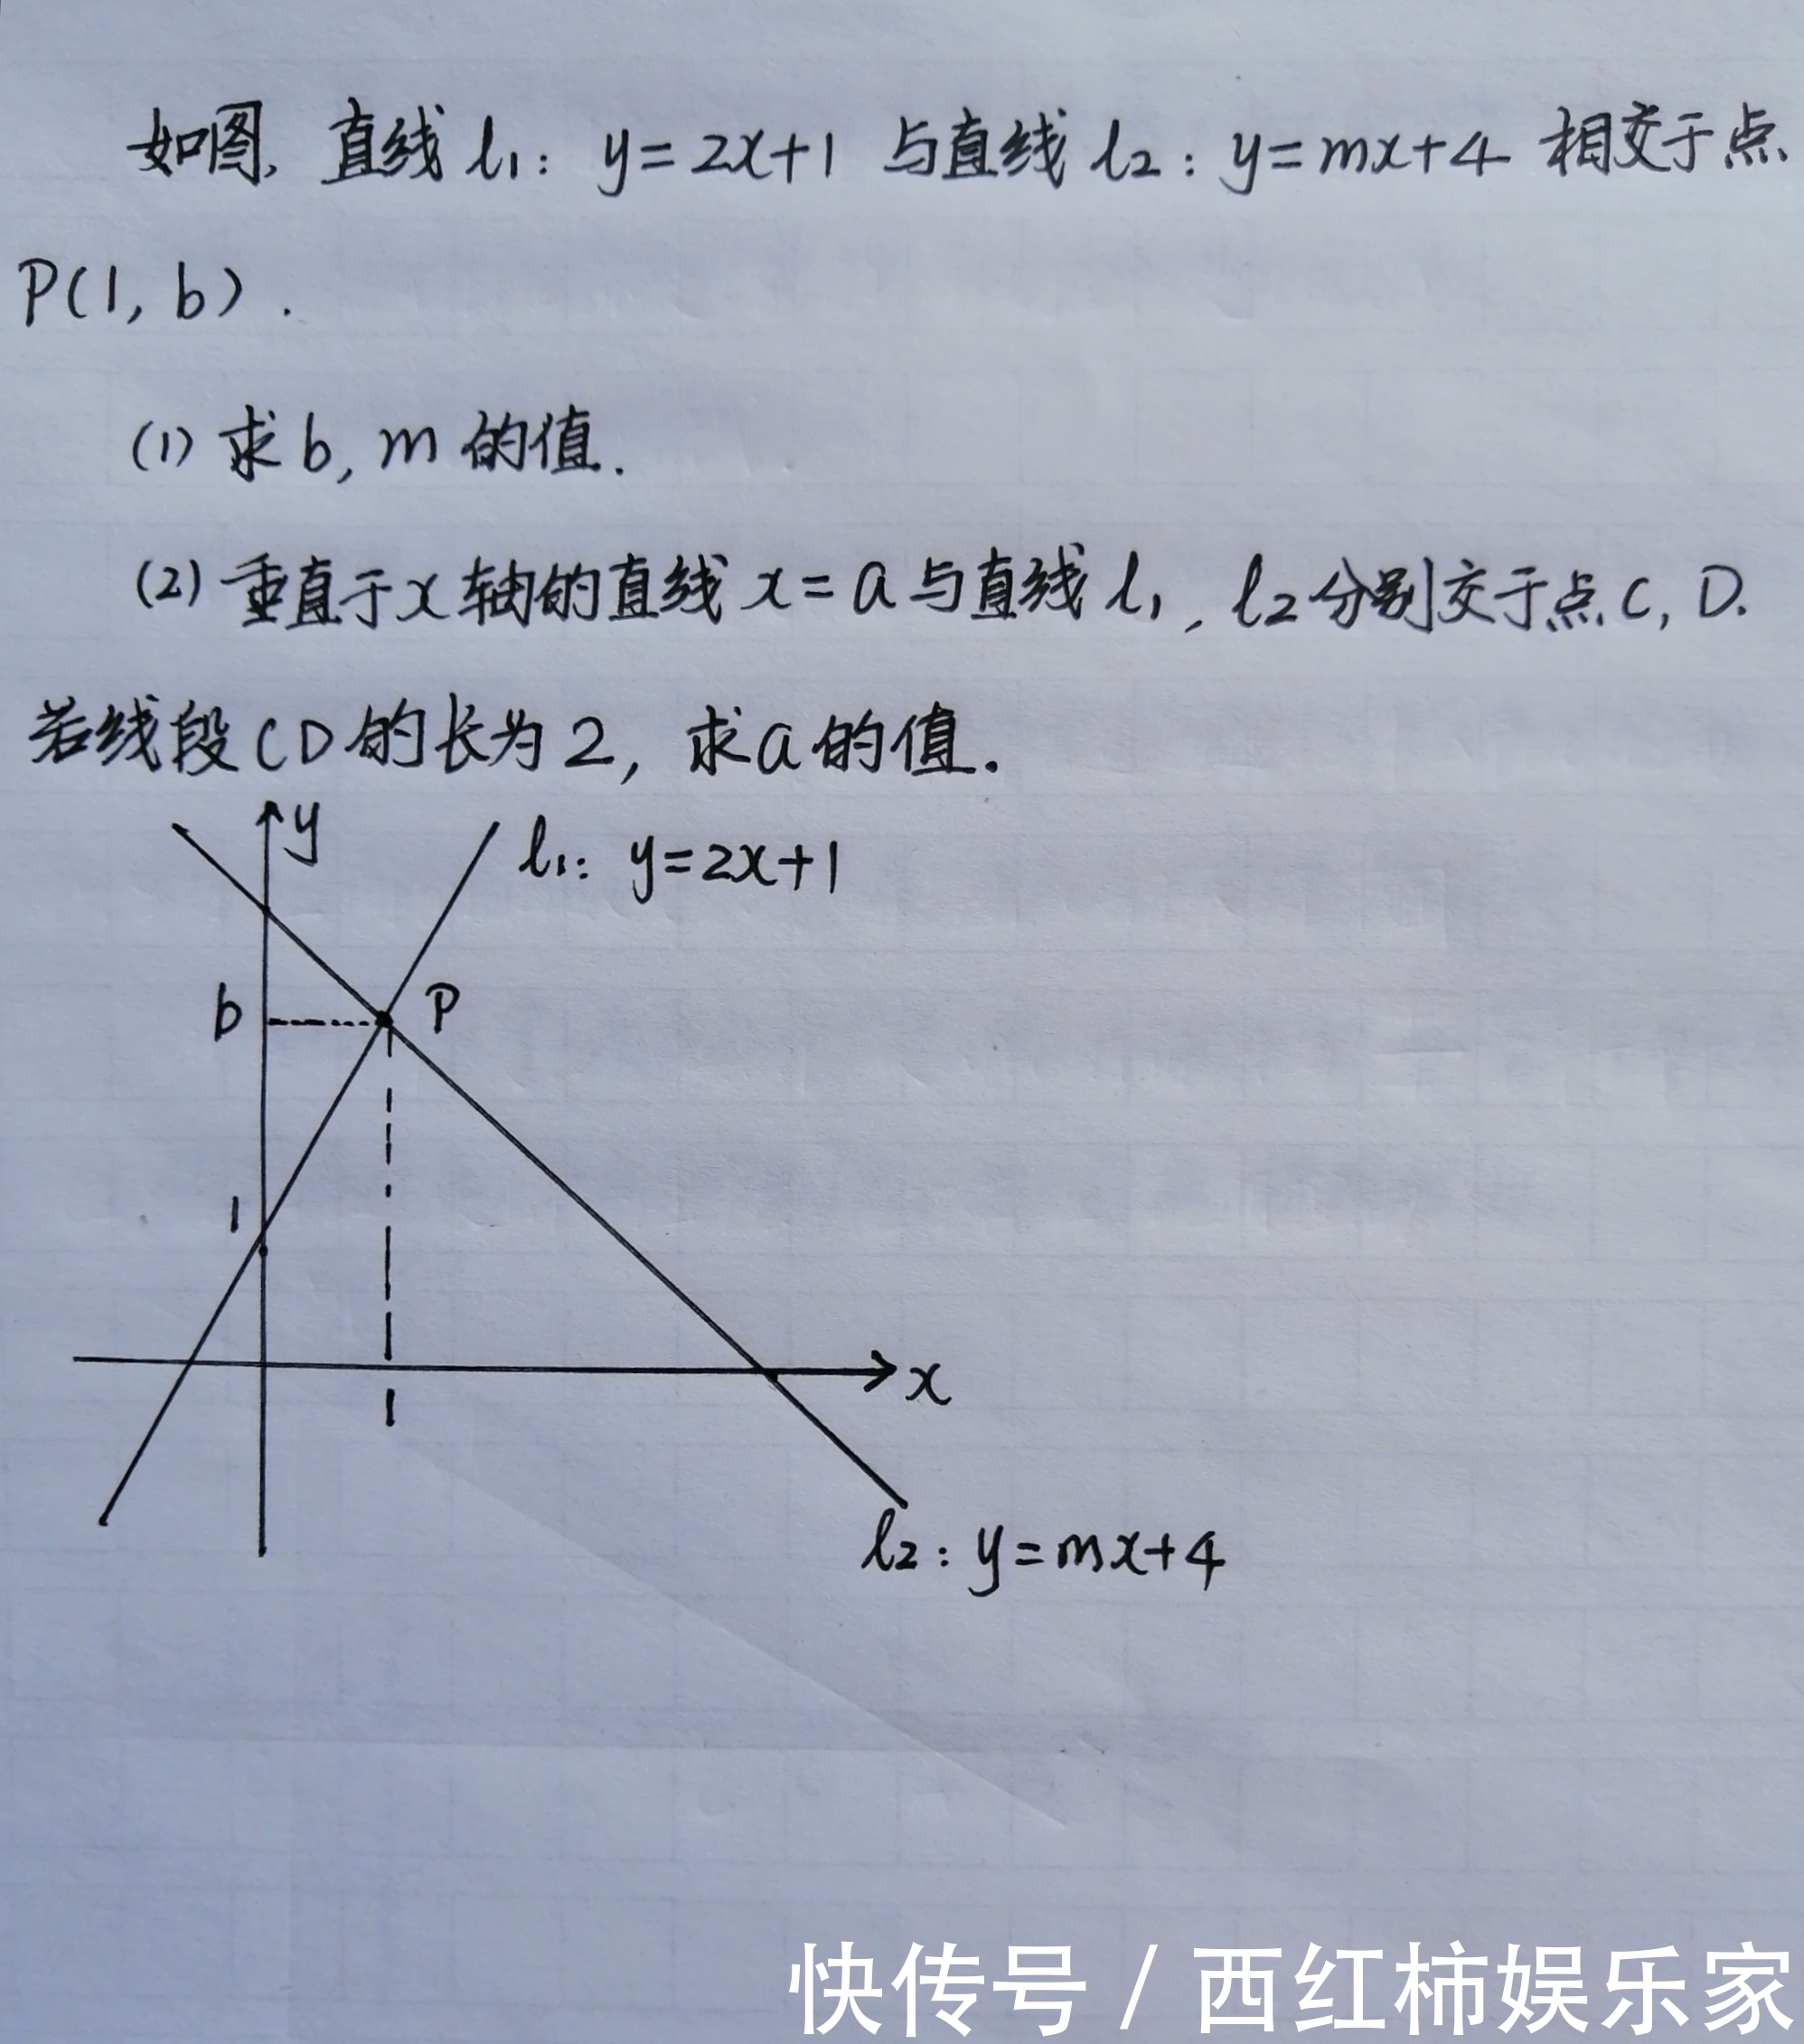 如图, 直线 l₁: y=2x+1 与直线 l₂: y=mx+4 相交于点
P(1, b).
(1) 求b, m 的值.
(2) 垂直于x轴的直线 x=a与直线 l₁, l₂分别交于点C, D.
若线段CD的长为2, 求a的值.
y
l₁: y=2x+1
b
P
1
x
1
l₂: y=mx+4
快传号/西红柿娱乐家